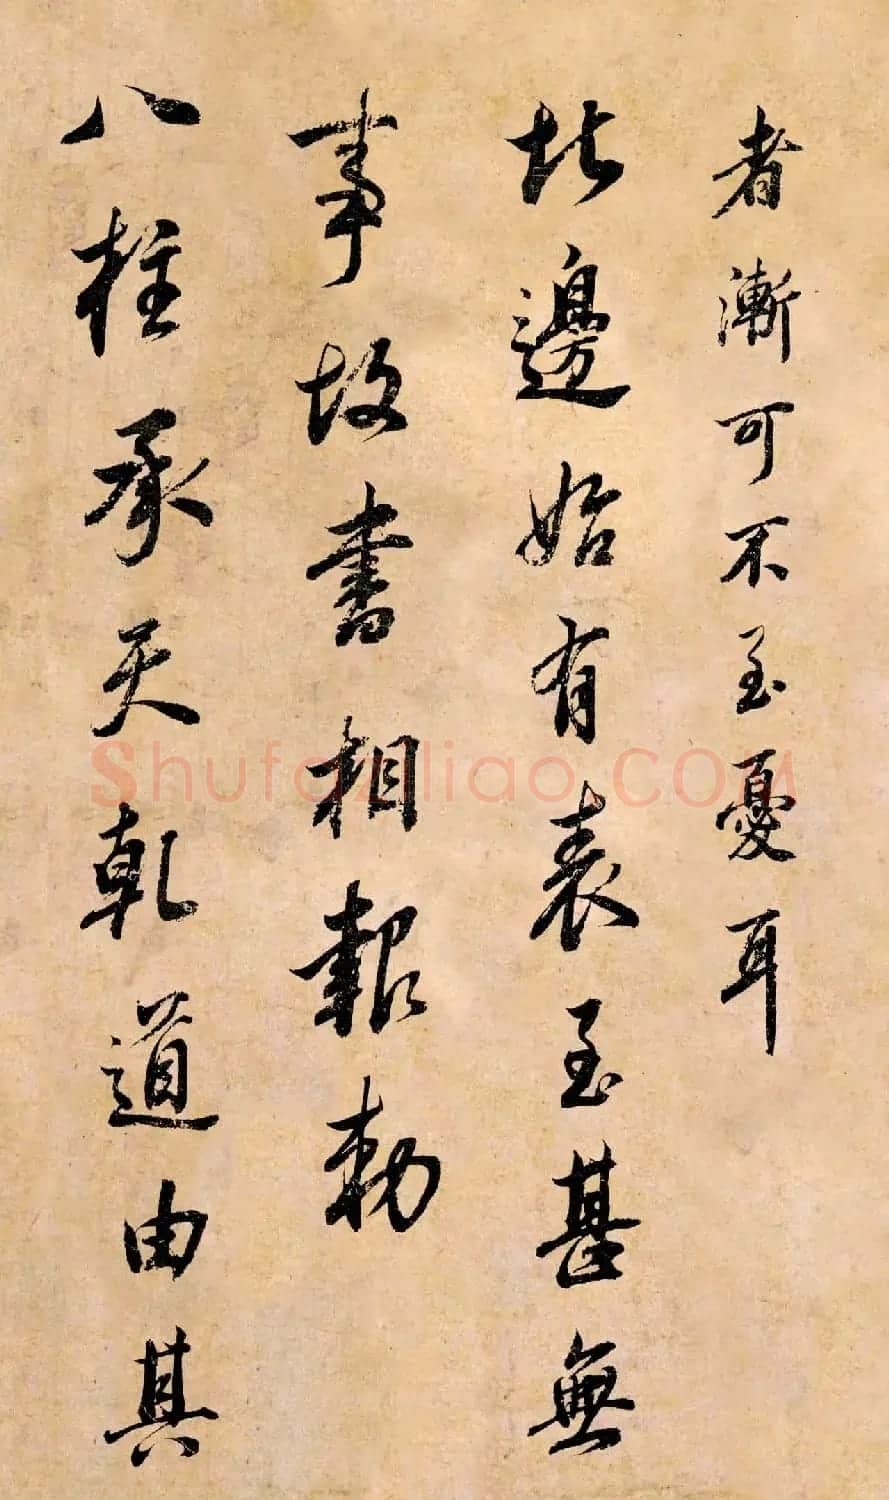 者漸可不至憂耳
北邊始有表至甚無
事故書相報勅
八柱承天乾道由其
Shufaziliao.COM